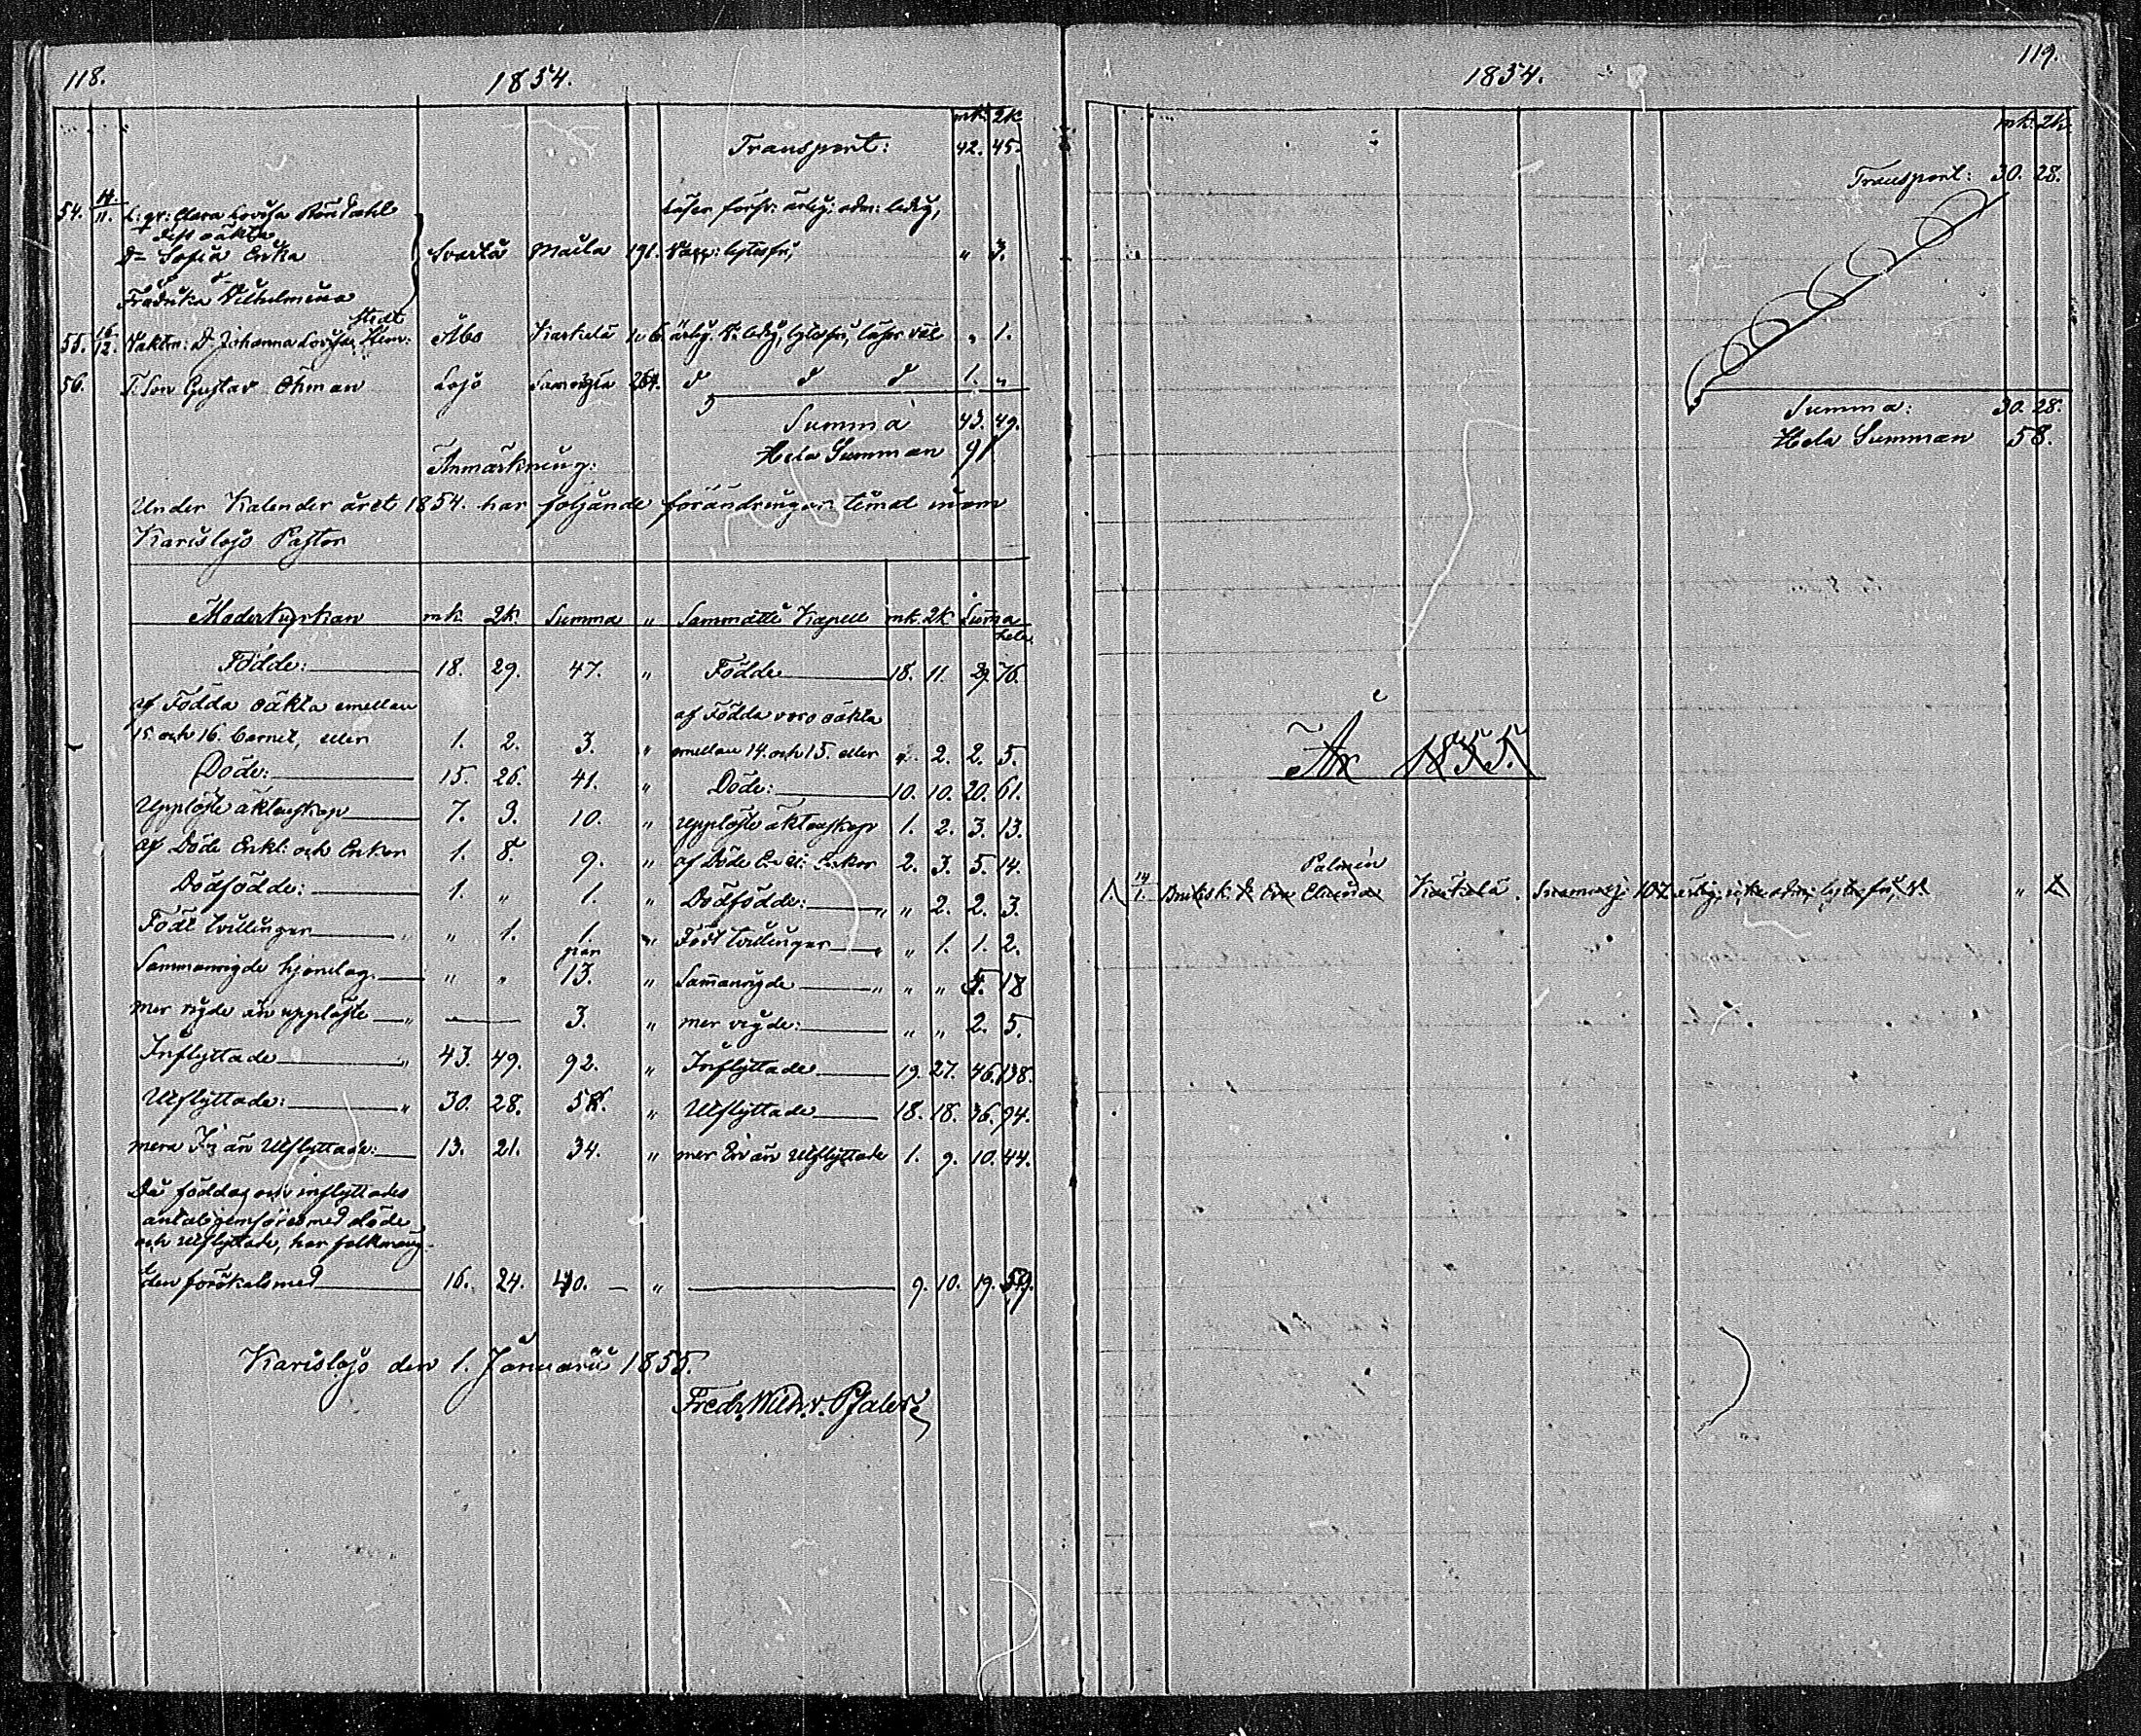 118.
1854.
mk: 2k:
Transport: 42. 45.
54. 14/11. Clara Lovisa
dess oäkta
D= Sofia Erika } Svartå Maila 191. lytesfri, " 3.
d
Fredrika Vilhelmina
stedt
55. 16/12. Vaktm: D. Johanna Lovisa Åbo Karkela ärlig, ledig, lytesfri, läser väl " 1.
56. T. Son Gustav Öhman Lojo 264. d d d 1. "
Summa 43. 49.
Hela Summan 91
Anmärkning:
Under Kalender året 1854. har följande förändringar timat inom
Karislojo Pastor
Moderkyrkan mk. 2k. Summa " Sammatti Kapell mk. 2k Summa
hela
Födde: 18. 29. 47. " Födde 18. 11. 29. 76.
af Födda oäkta emellan
af Födda voro oäkta
15 och 16. barnet, eller 1. 2. 3. " emellan 14. och 15. eller ". 2. 2. 5.
Döde: 15. 26. 41. " Döde: 10. 10. 20. 61.
Upplöste äktenskap 7. 3. 10. " Upplöste äktenskap 1. 2. 3. 13.
af Döde Enkl: och Enkor 1. 8. 9. " af Döde Enkor 2. 3. 5. 14.
Dödfödde: 1. " 1. " Dödfödde: " " 2. 2. 3.
Födt tvillingar " " 1. 1. " Födt tvillingar " " 1. 1. 2.
par
Sammanvigde hjonelag. " " 13. " Sammanvigde " " " 5. 18
mer vigde än upplöste " 3. " mer vigde: " " 2. 5.
Inflyttade " 43. 49. 92. " Inflyttade 19. 27. 46. 138.
Utflyttade: " 30. 28. 58. " Utflyttade 18. 18. 36. 94.
mera In än Utflyttade: 13. 21. 34. " mer In än Utflyttade 1. 9. 10. 44.
Då föddas och inflyttades
antal jemföres med döde
och utflyttade, har folkmäng-
den förökats med 16. 24. 40. " 9. 10. 19. 59.
Karislojo den 1. Januarii 1855.
Fredr. Wilh. v. Pfaler
119.
1854.
mk: 2k:
Transport: 30. 28.
Summa: 30. 28.
Hela Summan 58.
År 1855.
Palmén
1. 14/1. Karkela 107 " 1.